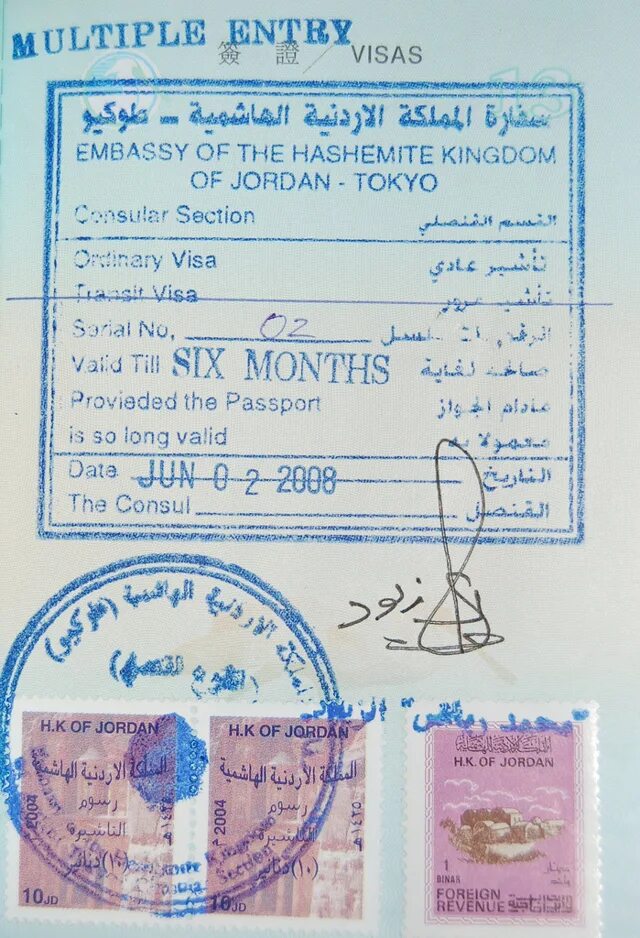 MULTIPLE ENTRY
簽 證 / VISAS
13
سفارة المملكة الاردنية الهاشمية - طوكيو
EMBASSY OF THE HASHEMITE KINGDOM
OF JORDAN - TOKYO
Consular Section القسم القنصلي
Ordinary Visa تأشير عادي
Transit Visa تأشير مرور
Serial No, 02
Valid Till SIX MONTHS صالحه لغاية
Provieded the Passport مادام الجواز
is so long valid معمولا به
Date JUN 0 2 2008 التاريخ
The Consul القنصل
المملكة الاردنية الهاشمية (طوكيو)
H.K OF JORDAN
المملكة الأردنية الهاشمية
رسوم
التأشيرة
(١٠) دنانير
2004
١٤٢٥ هـ
10 JD
H.K OF JORDAN
المملكة الأردنية الهاشمية
رسوم
التأشيرة
(١٠) دنانير
2004 م
١٤٢٥ هـ
10 JD
"محمد
المملكة الأردنية الهاشمية
H.K. OF JORDAN
1
DINAR
FOREIGN
REVENUE